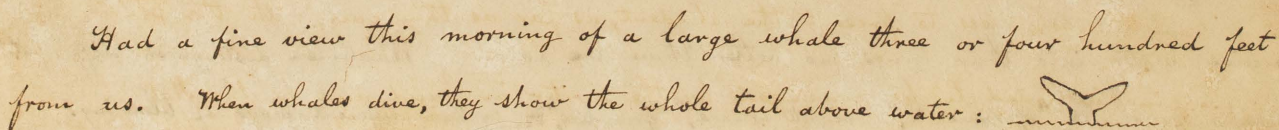 Had a fine view this morning of a large whale three or four hundred feet
from us. When whales dive, they show the whole tail above water :